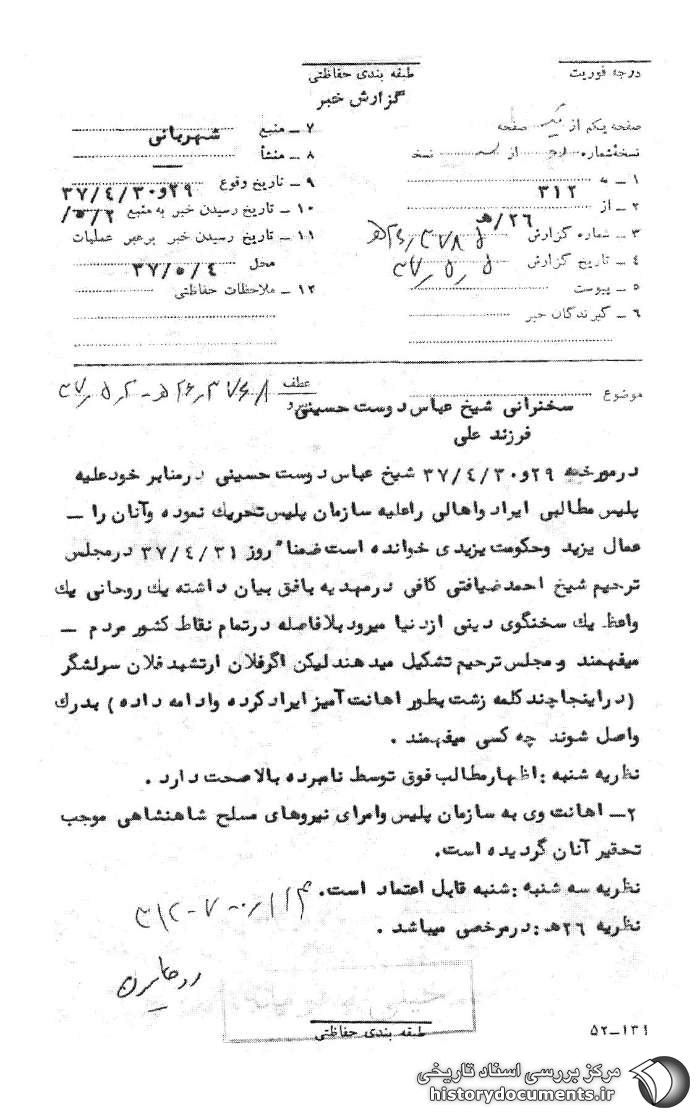 درجه فوریت
طبقه بندی حفاظتی
گزارش خبر
صفحه یکم از یک صفحه
نسخهٔ شماره از نسخه
۱ ــ به ۳۱۲
۲ ــ از ۲۶/هـ
۳ ــ شماره گزارش
۴ ــ تاریخ گزارش
۵ ــ پیوست
۶ ــ گیرندگان خبر
۷ ــ منبع شهربانی
۸ ــ منشأ
۹ ــ تاریخ وقوع ۲۹و۳۷/۴/۳۰
۱۰ ــ تاریخ رسیدن خبر به منبع
۱۱ ــ تاریخ رسیدن خبر برهبر عملیات
محل ۳۷/۵/۴
۱۲ ــ ملاحظات حفاظتی
موضوع
عطف
پیرو
سخنرانی شیخ عباس دوست حسینی
فرزند علی
درمورخه ۲۹و۳۷/۴/۳۰ شیخ عباس دوست حسینی درمنابر خودعلیه
پلیس مطالبی ایراد واهالی راعلیه سازمان پلیس تحریك نموده وآنان را ــ
عمال یزید وحکومت یزیدی خوانده است ضمنا" روز ۳۷/۴/۳۱ درمجلس
ترحیم شیخ احمدضیافتی کافی درمهدیه بافق بیان داشته یك روحانی یك
واعظ یك سخنگوی دینی ازدنیا میرود بلافاصله درتمام نقاط کشور مردم ــ
میفهمند ومجلس ترحیم تشکیل میدهند لیکن اگرفلان ارتشبد فلان سرلشگر
(دراینجا چند کلمه زشت بطور اهانت آمیز ایرادکرده وادامه داده) بدرك
واصل شوند چه کسی میفهمند .
نظریه شنبه : اظهارمطالب فوق توسط نامبرده بالاصحت دارد .
۲ــ اهانت وی به سازمان پلیس وامرای نیروهای مسلح شاهنشاهی موجب
تحقیر آنان گردیده است.
نظریه سه شنبه : شنبه قابل اعتماد است.
نظریه ۲۶هـ : درمرخصی میباشد .
طبقه بندی حفاظتی
۵۲ــ۱۳۱
مرکز بررسی اسناد تاریخی
historydocuments.ir